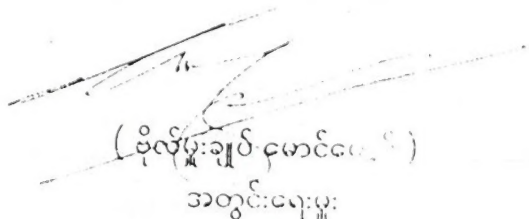 ( ဗိုလ်မှူးချုပ် မောင်မောင် )
အတွင်းရေးမှူး